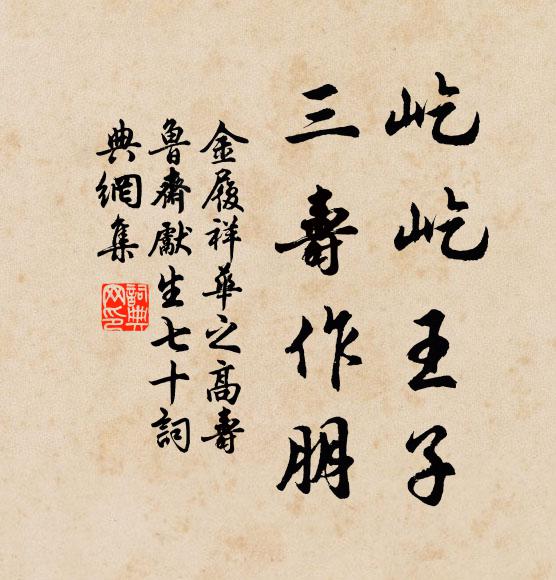 屹屹王子
三壽作朋
金履祥華之高壽
魯齋獻生七十詞
典網集
詞典网印